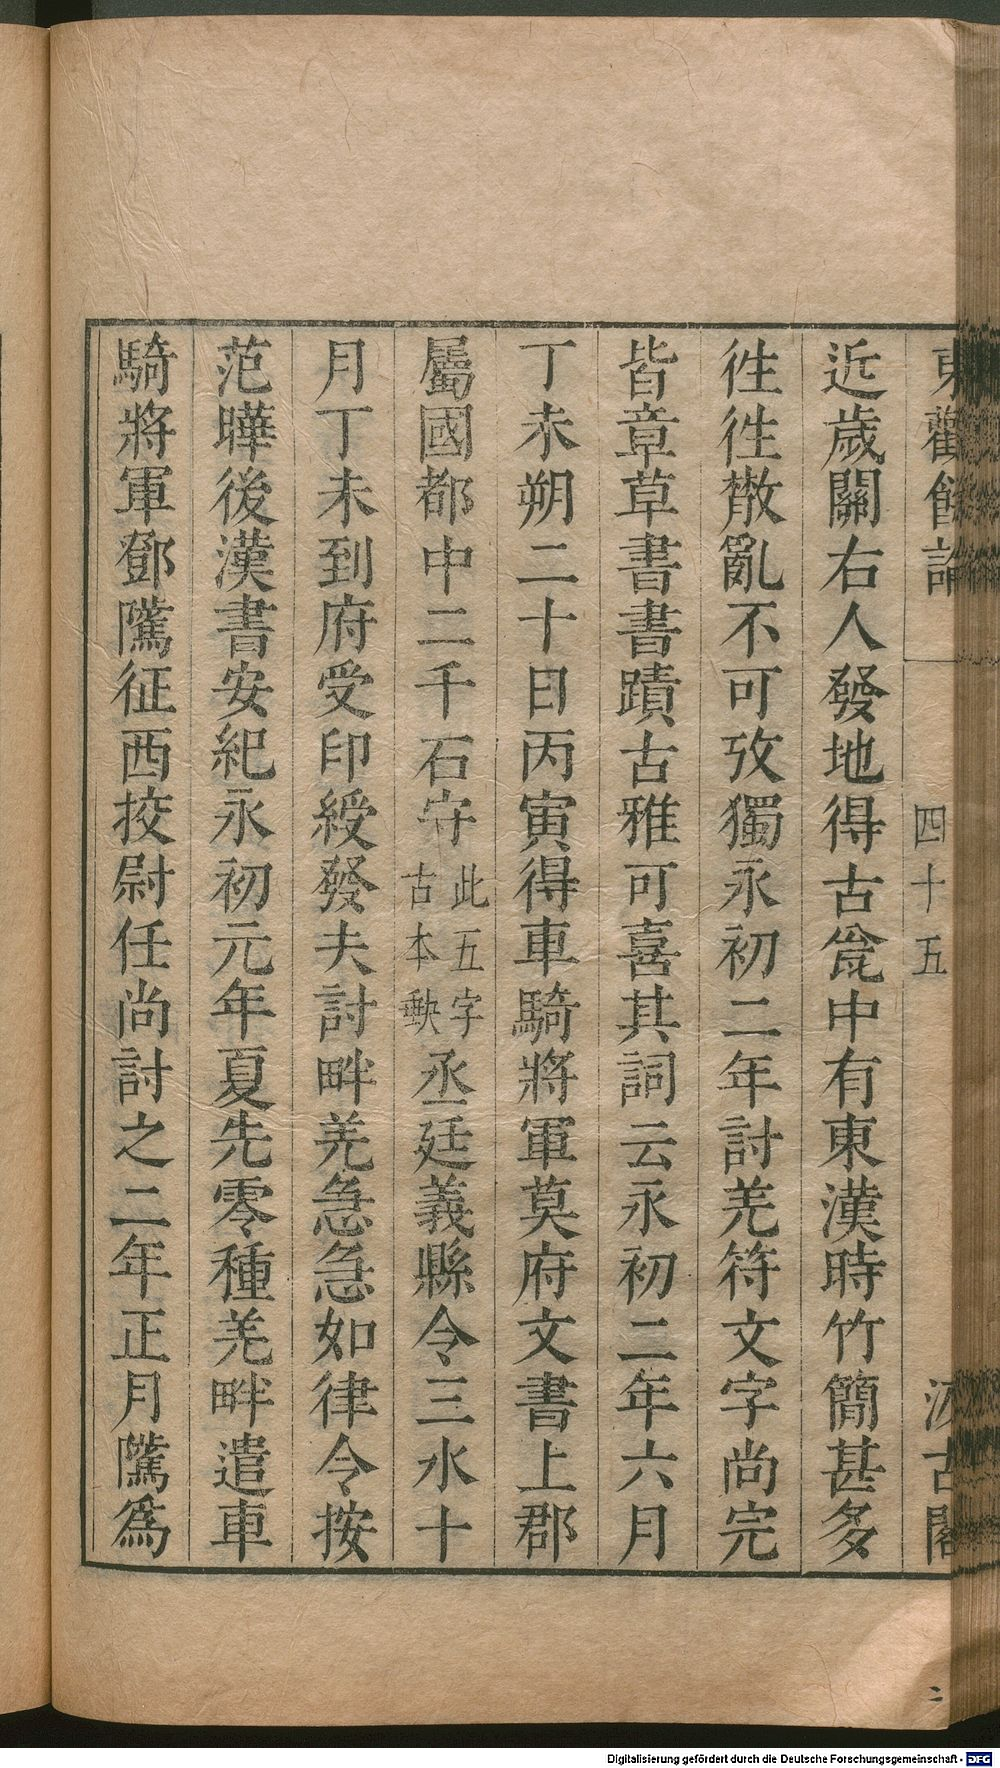 東觀餘論 四十五 汲古閣
近歲關右人發地得古瓮中有東漢時竹簡甚多
徃徃散亂不可攷獨永初二年討羌符文字尚完
皆章草書書蹟古雅可喜其詞云永初二年六月
丁未朔二十日丙寅得車騎將軍莫府文書上郡
屬國都中二千石守此五字古本缺丞廷義縣令三水十
月丁未到府受印綬發夫討畔羌急急如律令按
范曄後漢書安紀永初元年夏先零種羌畔遣車
騎將軍鄧隲征西挍尉任尚討之二年正月隲爲
二
Digitalisierung gefördert durch die Deutsche Forschungsgemeinschaft - DFG